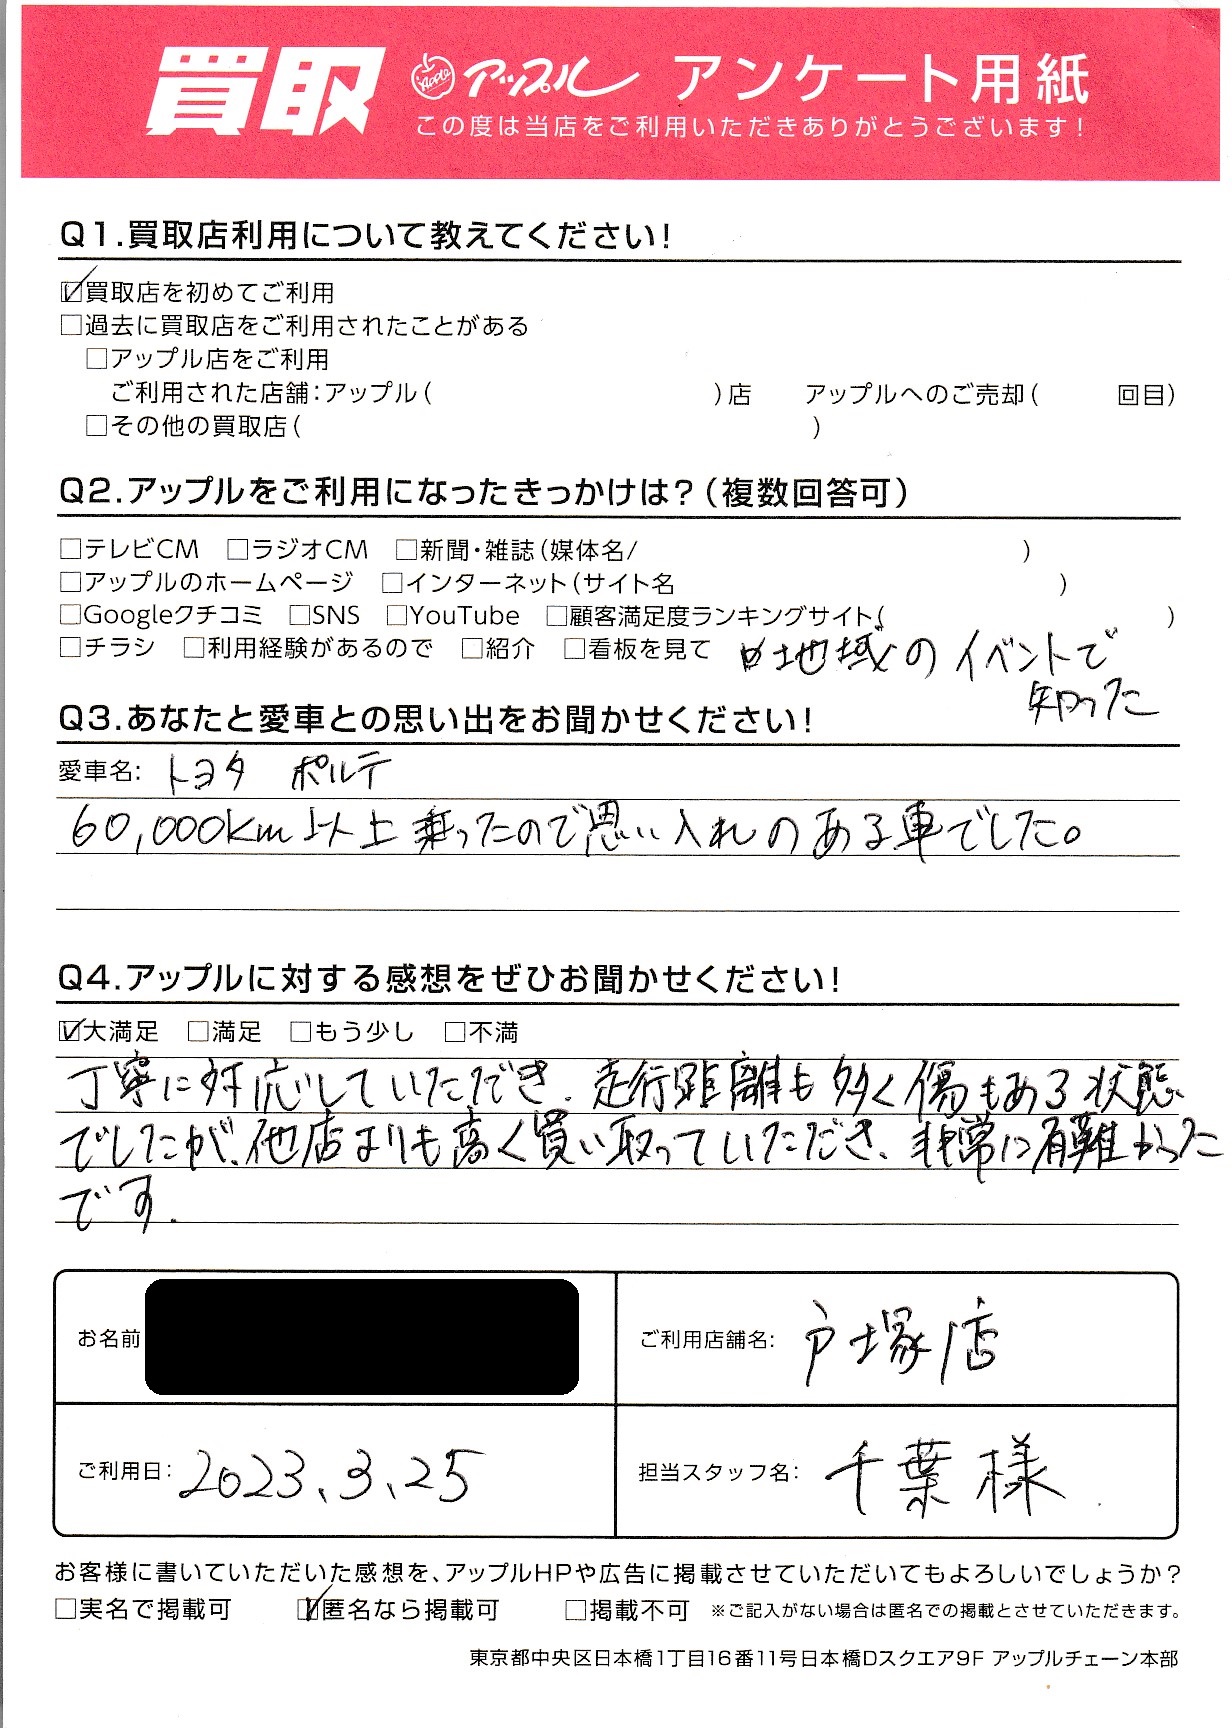 買取 Apple アップル アンケート用紙
この度は当店をご利用いただきありがとうございます!
Q1.買取店利用について教えてください!
☑買取店を初めてご利用
□過去に買取店をご利用されたことがある
□アップル店をご利用
ご利用された店舗:アップル( )店 アップルへのご売却( 回目)
□その他の買取店( )
Q2.アップルをご利用になったきっかけは?(複数回答可)
□テレビCM □ラジオCM □新聞・雑誌(媒体名/ )
□アップルのホームページ □インターネット(サイト名 )
□Googleクチコミ □SNS □YouTube □顧客満足度ランキングサイト( )
□チラシ □利用経験があるので □紹介 □看板を見て ☑地域のイベントで
知った
Q3.あなたと愛車との思い出をお聞かせください!
愛車名: トヨタ ポルテ
60,000km以上乗ったので思い入れのある車でした。
Q4.アップルに対する感想をぜひお聞かせください!
☑大満足 □満足 □もう少し □不満
丁寧に対応していただき、走行距離も多く傷もある状態
でしたが、他店よりも高く買い取っていただき、非常に有難かった
です。
お名前 ご利用店舗名: 戸塚店
ご利用日: 2023、3、25 担当スタッフ名: 千葉様
お客様に書いていただいた感想を、アップルHPや広告に掲載させていただいてもよろしいでしょうか?
□実名で掲載可 ☑匿名なら掲載可 □掲載不可 ※ご記入がない場合は匿名での掲載とさせていただきます。
東京都中央区日本橋1丁目16番11号日本橋Dスクエア9F アップルチェーン本部